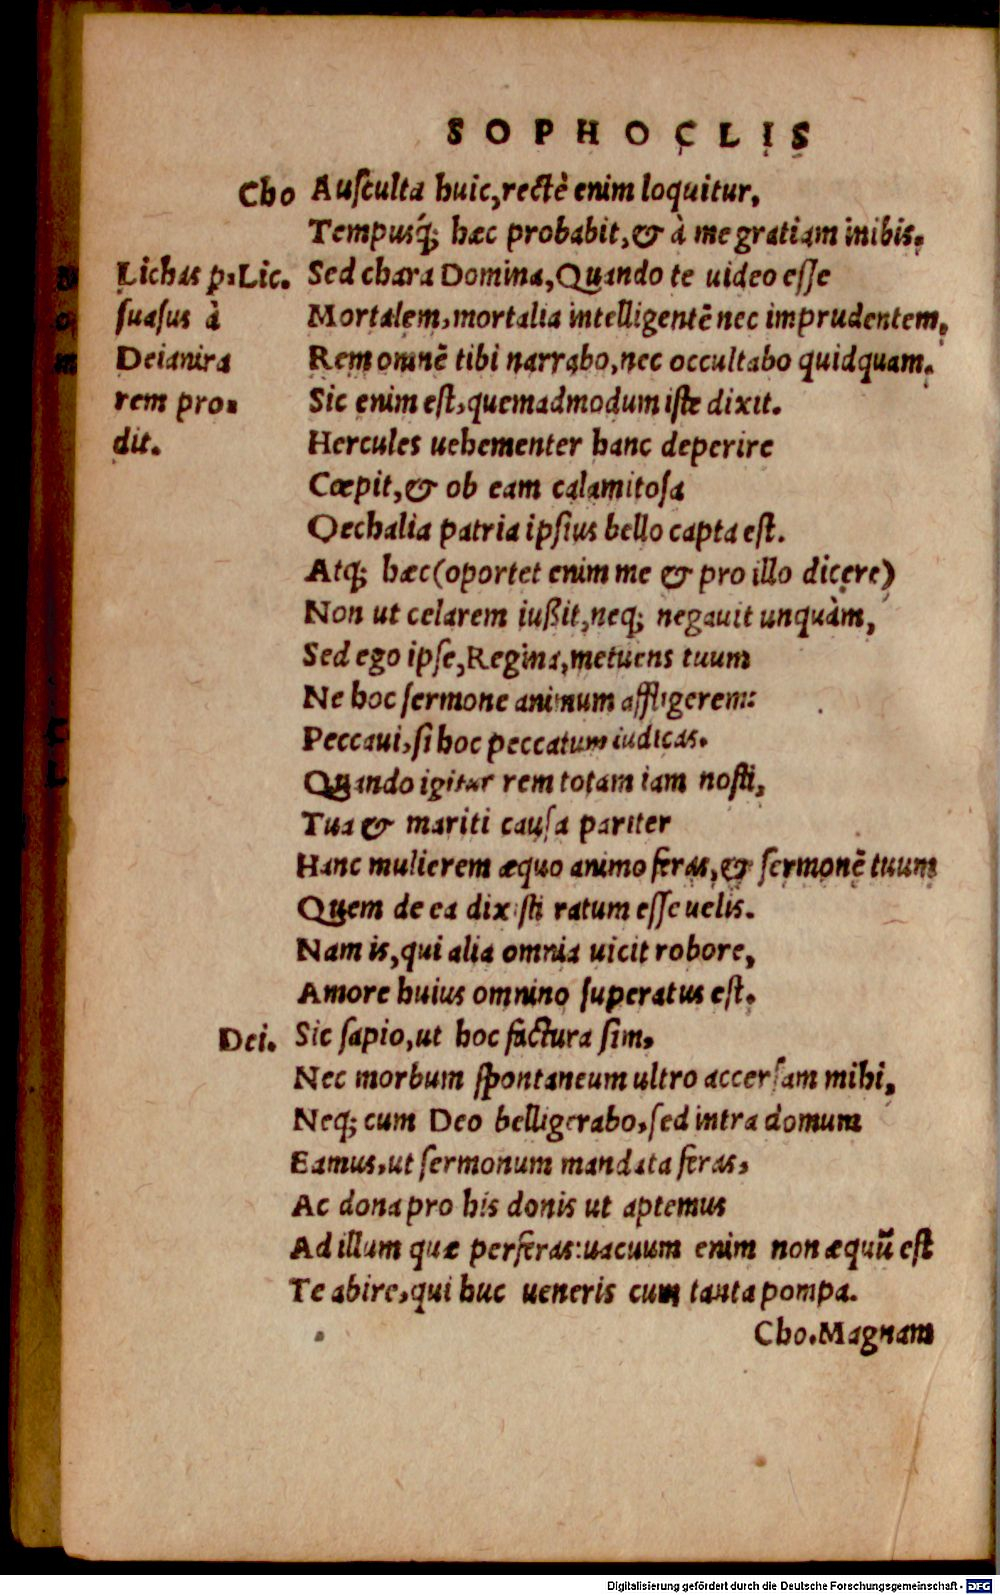 SOPHOCLIS
Cho Ausculta huic, rectè enim loquitur,
Tempusq́; hæc probabit, & à me gratiam inibis.
Lichas p= Lic. Sed chara Domina, Quando te uideo esse
suasus à Mortalem, mortalia intelligentē nec imprudentem,
Deianira Rem omnē tibi narrabo, nec occultabo quidquam.
rem pro= Sic enim est, quemadmodum iste dixit.
dit. Hercules uehementer hanc deperire
Cœpit, & ob eam calamitosa
Oechalia patria ipsius bello capta est.
Atq; hæc (oportet enim me & pro illo dicere)
Non ut celarem iußit, neq; negauit unquàm,
Sed ego ipse, Regina, metuens tuum
Ne hoc sermone animum affligerem:
Peccaui, si hoc peccatum iudicas.
Quando igitur rem totam iam nosti,
Tua & mariti causa pariter
Hanc mulierem æquo animo feras, & sermonē tuum
Quem de ea dixisti ratum esse uelis.
Nam is, qui alia omnia uicit robore,
Amore huius omnino superatus est.
Dei. Sic sapio, ut hoc factura sim,
Nec morbum spontaneum ultro accersam mihi,
Neq; cum Deo belligerabo, sed intra domum
Eamus, ut sermonum mandata feras,
Ac dona pro his donis ut aptemus
Ad illum quæ perferas: uacuum enim non æquū est
Te abire, qui huc ueneris cum tanta pompa.
Cho. Magnam
Digitalisierung gefördert durch die Deutsche Forschungsgemeinschaft - DFG